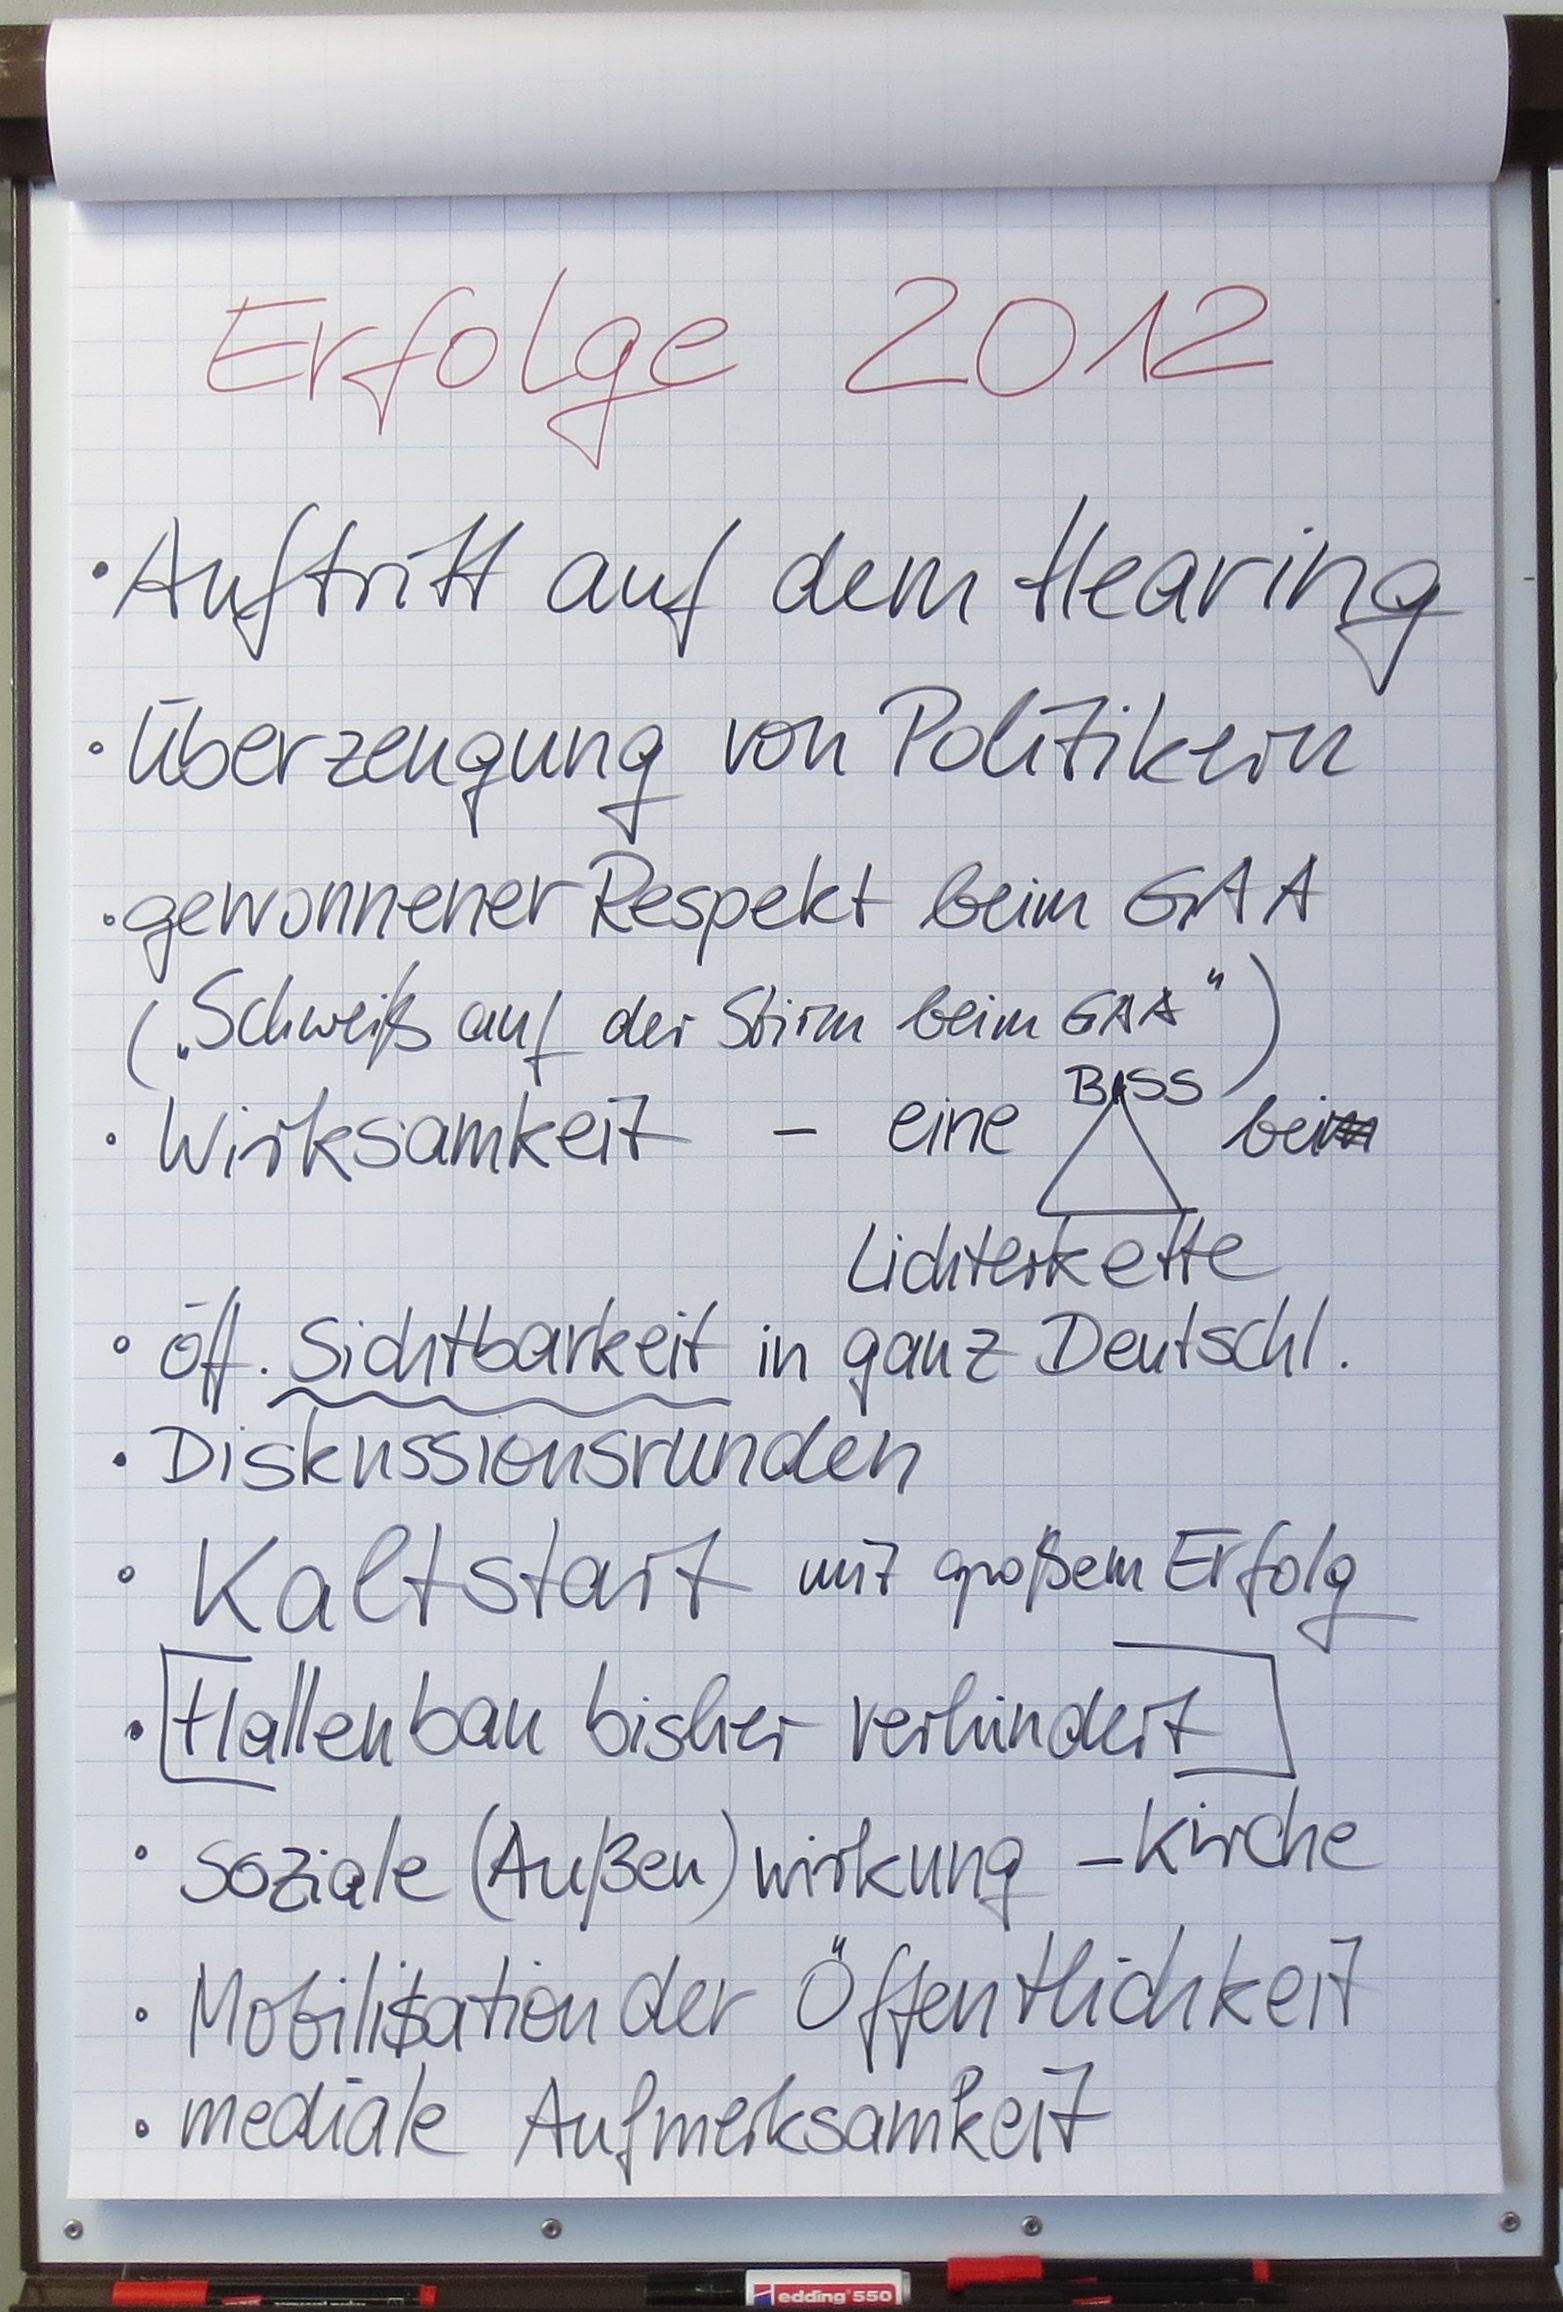 Erfolge 2012
• Auftritt auf dem Hearing
• Überzeugung von Politikern
• gewonnener Respekt beim GAA
(„Schweiß auf der Stirn beim GAA“)
BISS
• Wirksamkeit – eine bei
Lichterkette
• öff. Sichtbarkeit in ganz Deutschl.
• Diskussionsrunden
• Kaltstart mit großem Erfolg
• Hallenbau bisher verhindert
• soziale (Außen)wirkung – Kirche
• Mobilisation der Öffentlichkeit
• mediale Aufmerksamkeit
edding 550